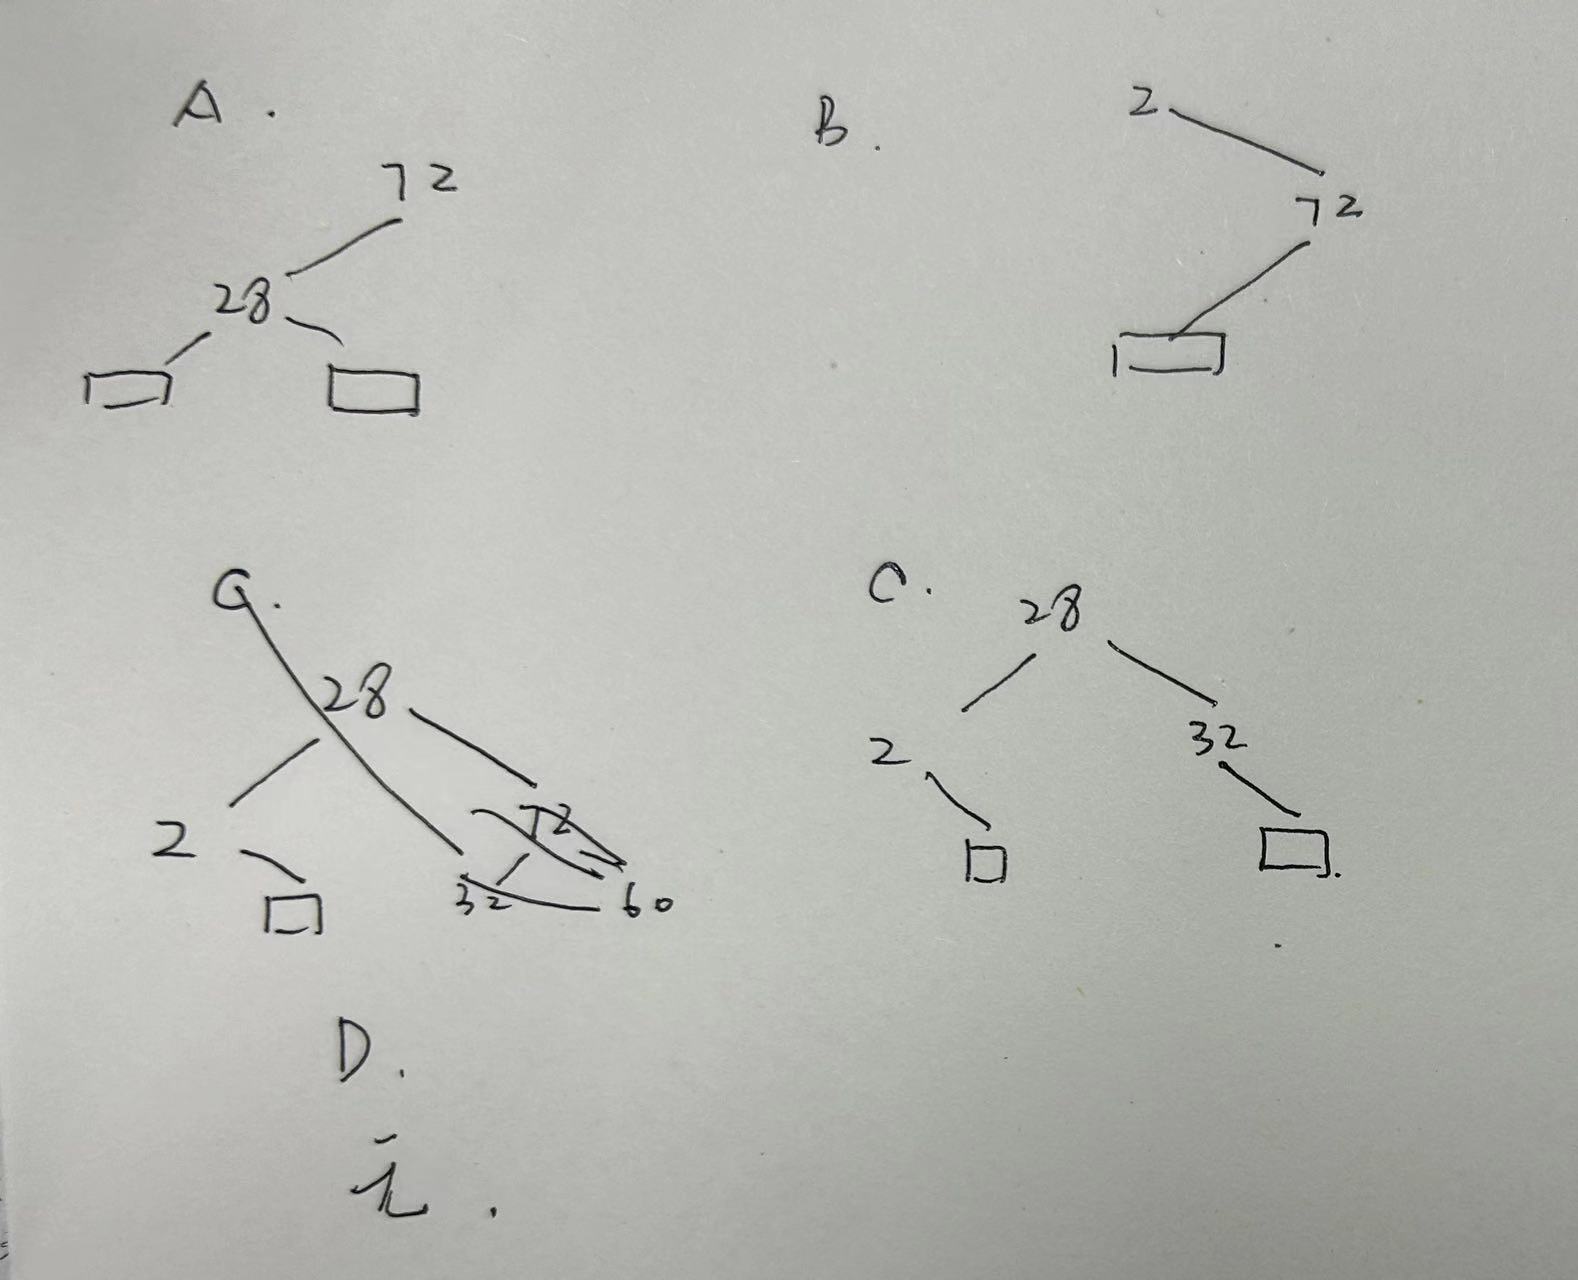 A.
72
28
B.
2
72
C.
28
2
72
32 60
C.
28
2 32
D.
i.